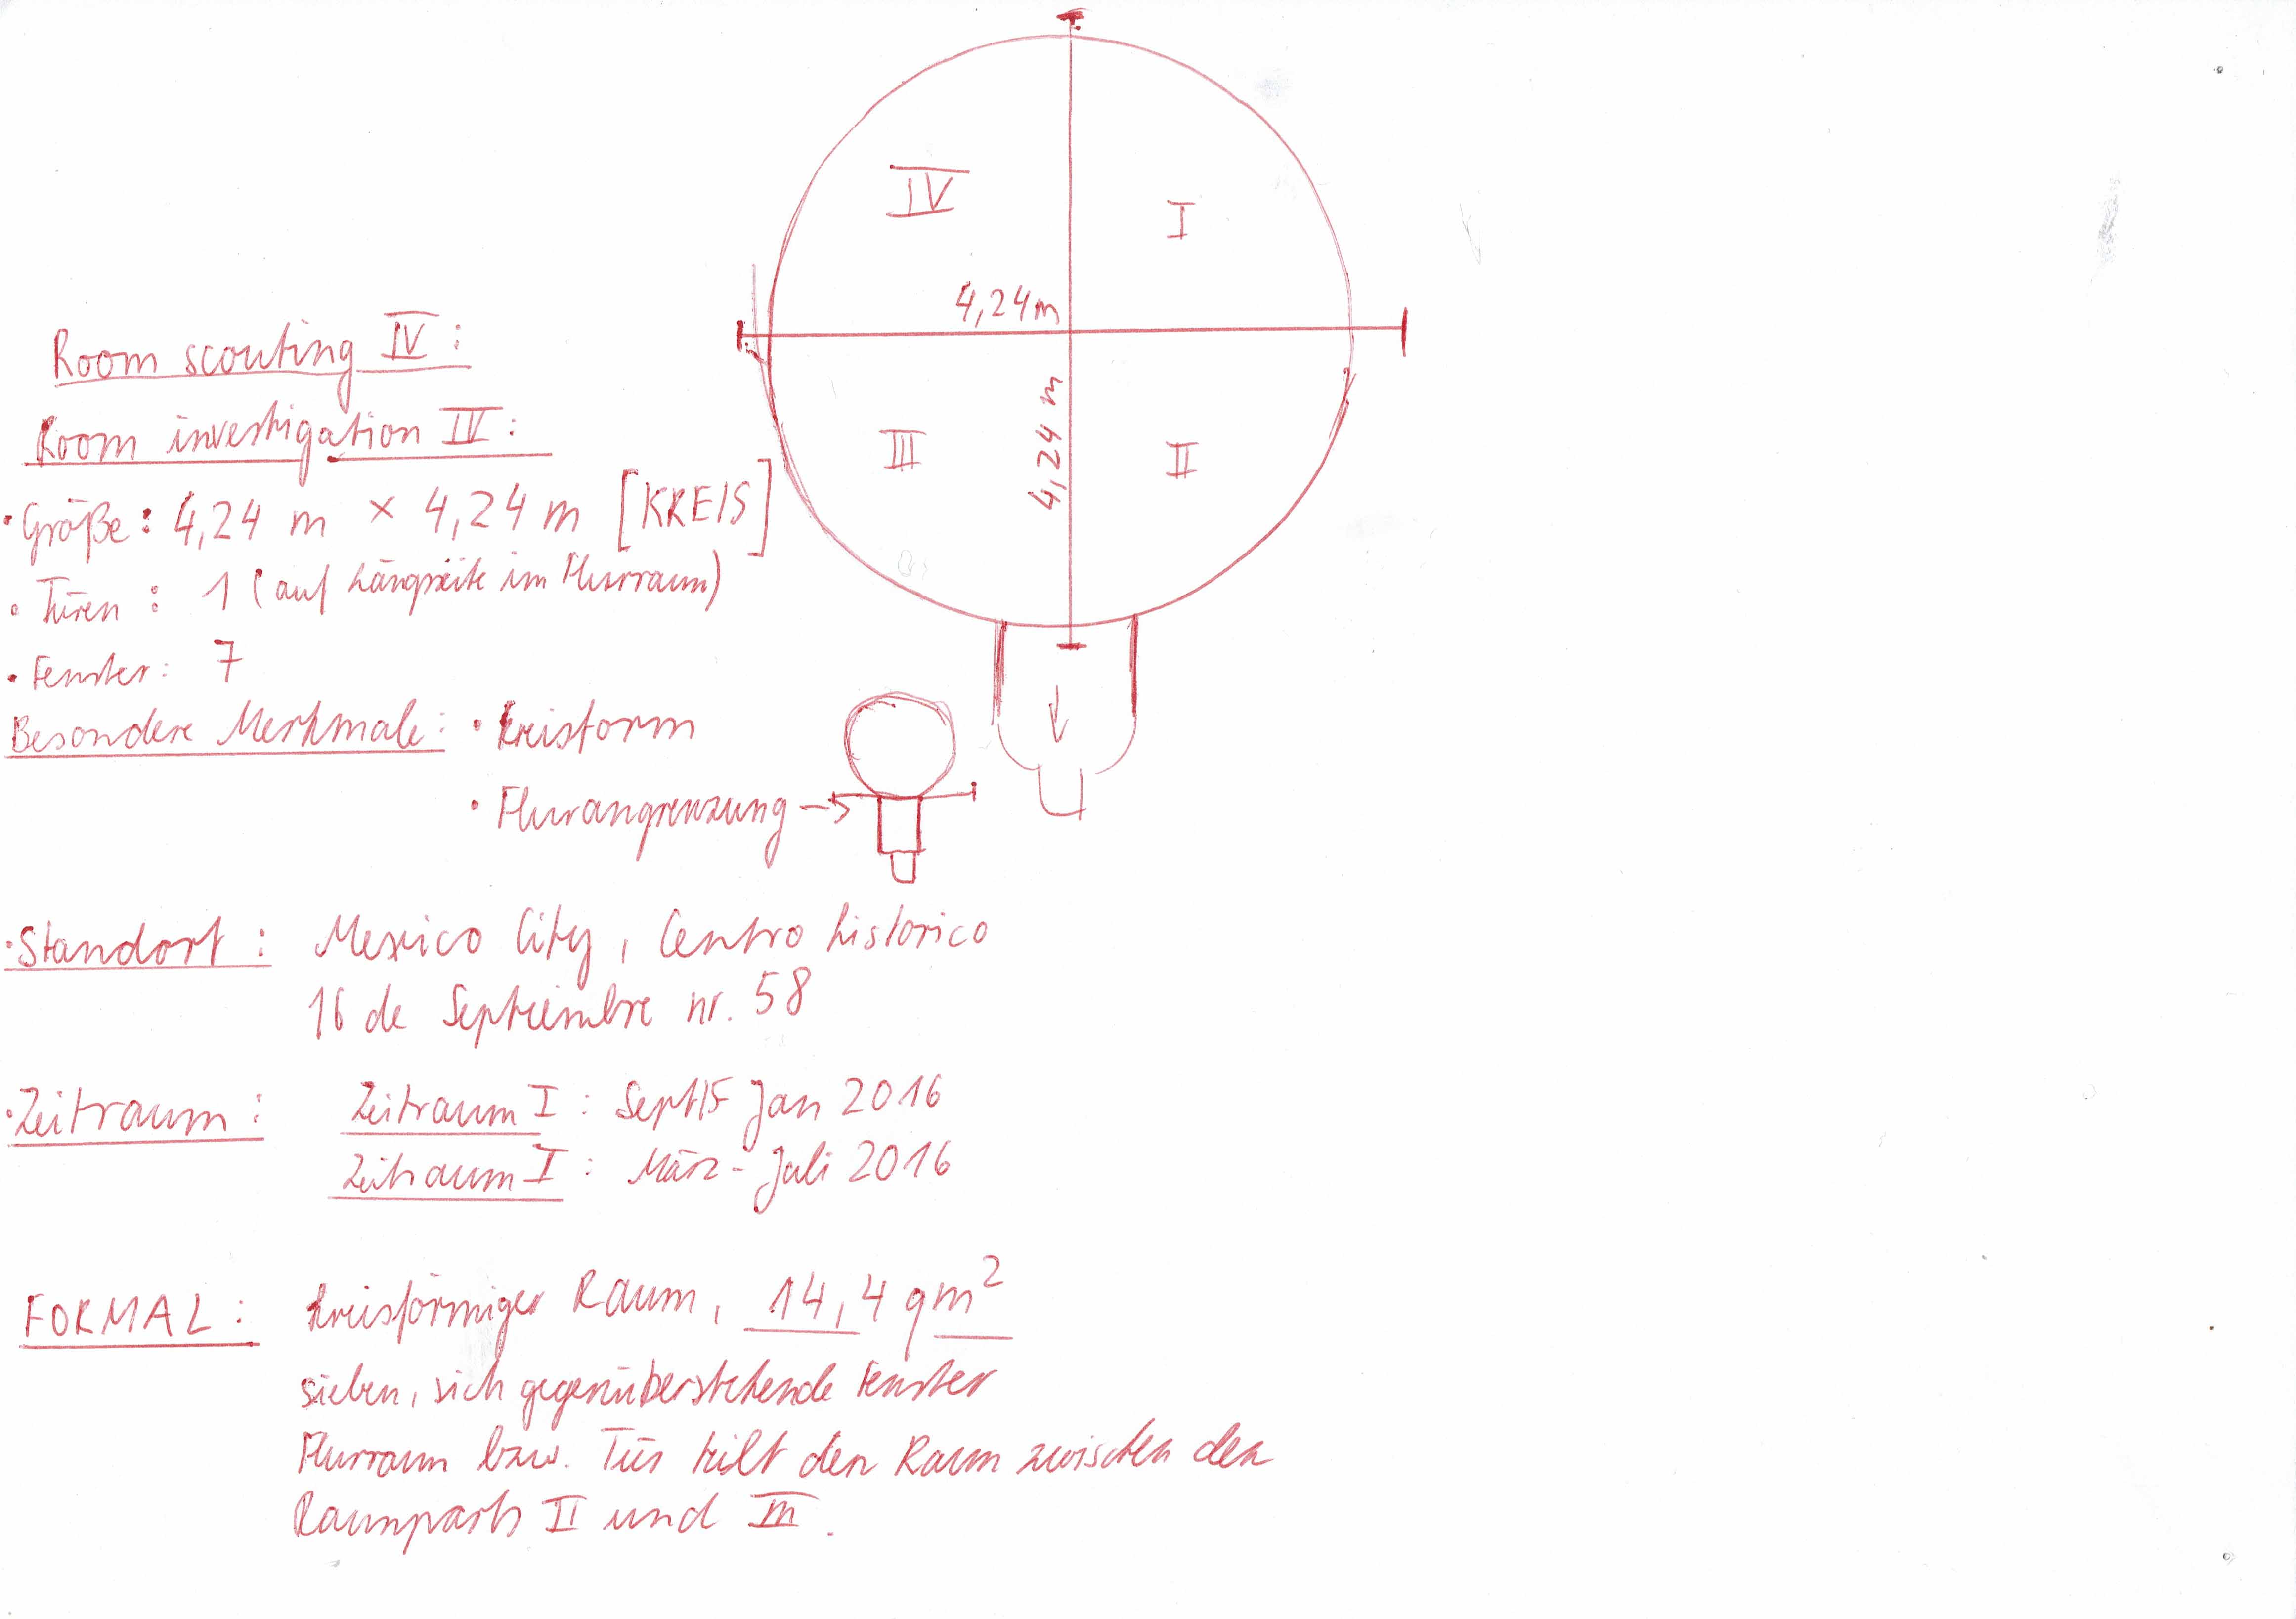 IV
I
4,24m
III
4,24 m
II
Room scouting IV:
Room investigation IV:
· Größe: 4,24 m × 4,24 m [KREIS]
· Türen: 1 (auf Längseite im Flurraum)
· Fenster: 7
Besondere Merkmale: · Kreisform
· Flurangrenzung →
· Standort: Mexico City, Centro historico
16 de Septiembre nr. 58
· Zeitraum: Zeitraum I: Sept15 Jan 2016
Zeitraum I: März - Juli 2016
FORMAL: kreisförmiger Raum, 14,4 qm²
sieben, sich gegenüberstehende Fenster
Flurraum bzw. Tür teilt den Raum zwischen den
Raumparts II und III.